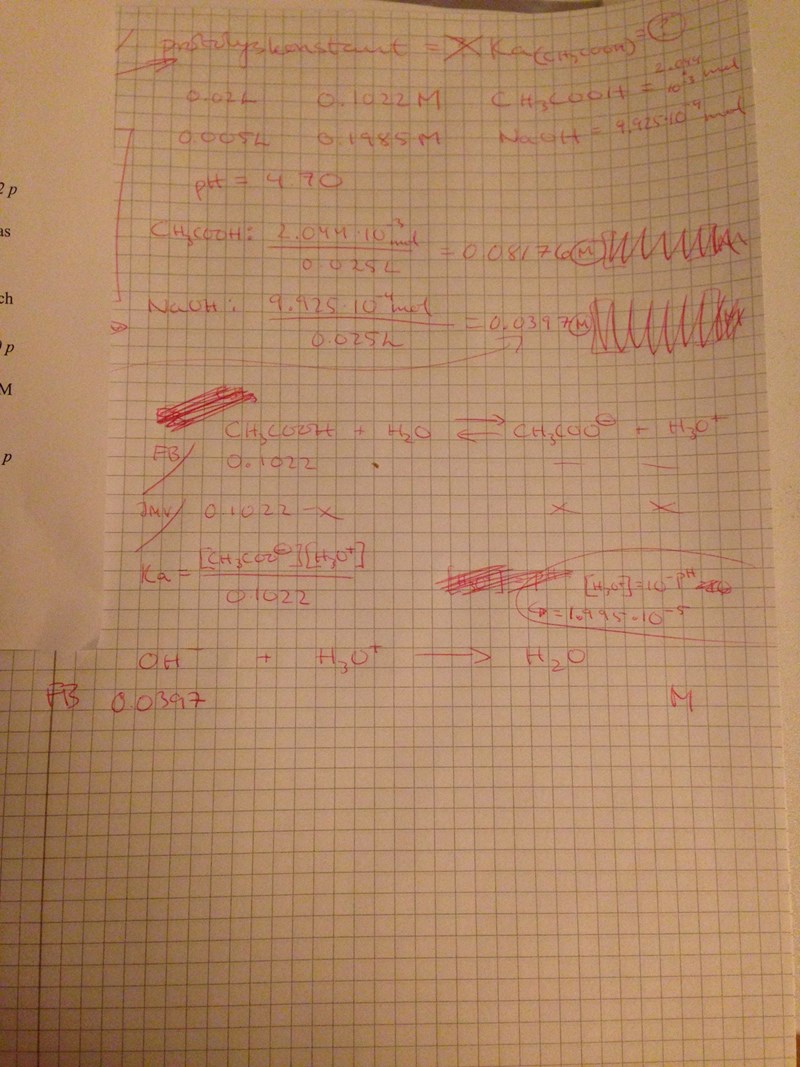 protolyskonstant = Ka(CH3COOH) = ?
0.02L 0.1022M CH3COOH = 2.044·10⁻³ mol
0.005L 0.1985M NaOH = 9.925·10⁻⁴ mol
pH = 4.70
CH3COOH: 2.044·10⁻³ mol / 0.025L = 0.08176 M
NaOH: 9.925·10⁻⁴ mol / 0.025L = 0.0397 M
CH3COOH + H2O ⇌ CH3COO⊖ + H3O⁺
FB/ 0.1022 — —
JMV/ 0.1022-x x x
Ka = [CH3COO⊖][H3O⁺] / 0.1022
[H3O⁺] = 10⁻ᵖᴴ
⇒ = 1.995·10⁻⁵
OH⁻ + H3O⁺ → H2O
FB 0.0397 M
2 p
as
ch
p
M
p